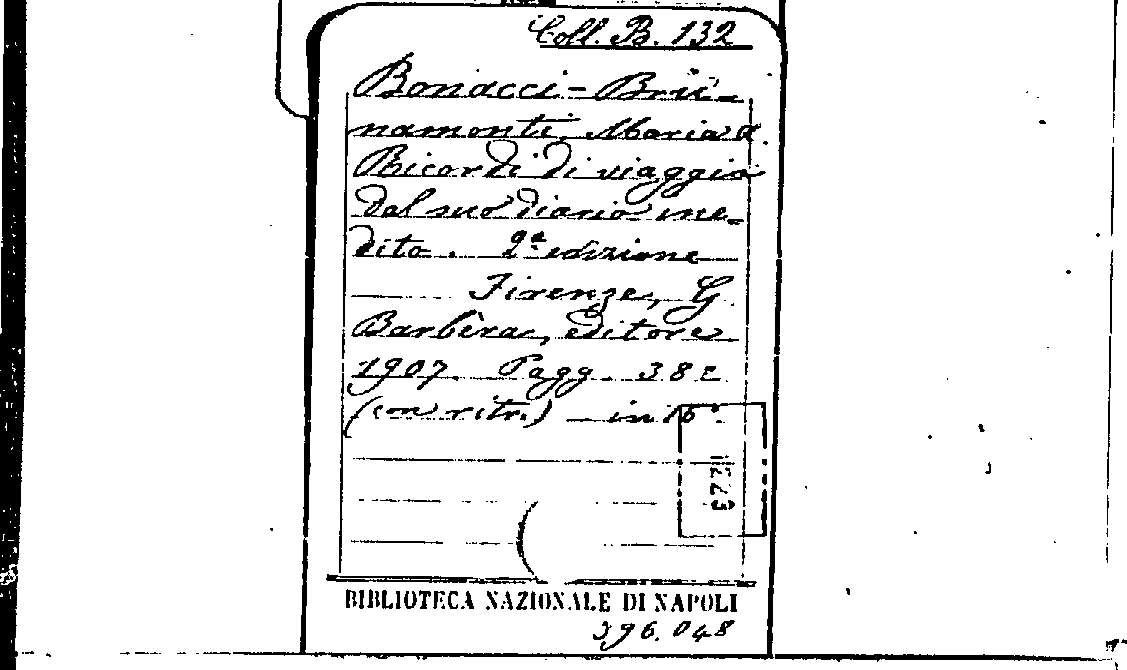 Coll. B. 132
Bonacci-Bru-
namonti, Maria A.
Ricordi di viaggio
dal suo diario ine-
dito. 2ª edizione
Firenze, G
Barbèra, editore
1907. Pagg. 382
(con ritr.) – in 16º.
BIBLIOTECA NAZIONALE DI NAPOLI
396.048